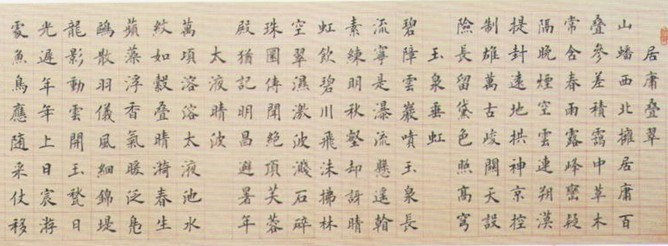 居庸叠翠
山蟠西北擁居庸百
叠參差積靄中草木
常含春雨露峰巒疑
隅晚煙空雲連朔漠
提封遠地拱神京控
制雄萬古峻關天設
險長留黛色照高穹
玉泉垂虹
碧障雲巖噴玉泉長
流寧是瀑流懸遙翰
素練明秋壑却訝晴
虹飲碧川飛沫拂林
空翠濕激波濺石碎
珠圓傳聞絕頂芙蓉
殿猶記明昌避暑年
太液晴波
萬頃溶溶太液池水
紋如縠叠晴漪春生
蘋藻浮香氣暖泛凫
鷗散羽儀風細錦堤
龍影動雲開玉甃日
光遲年年上日宸游
處魚鳥應随采仗移